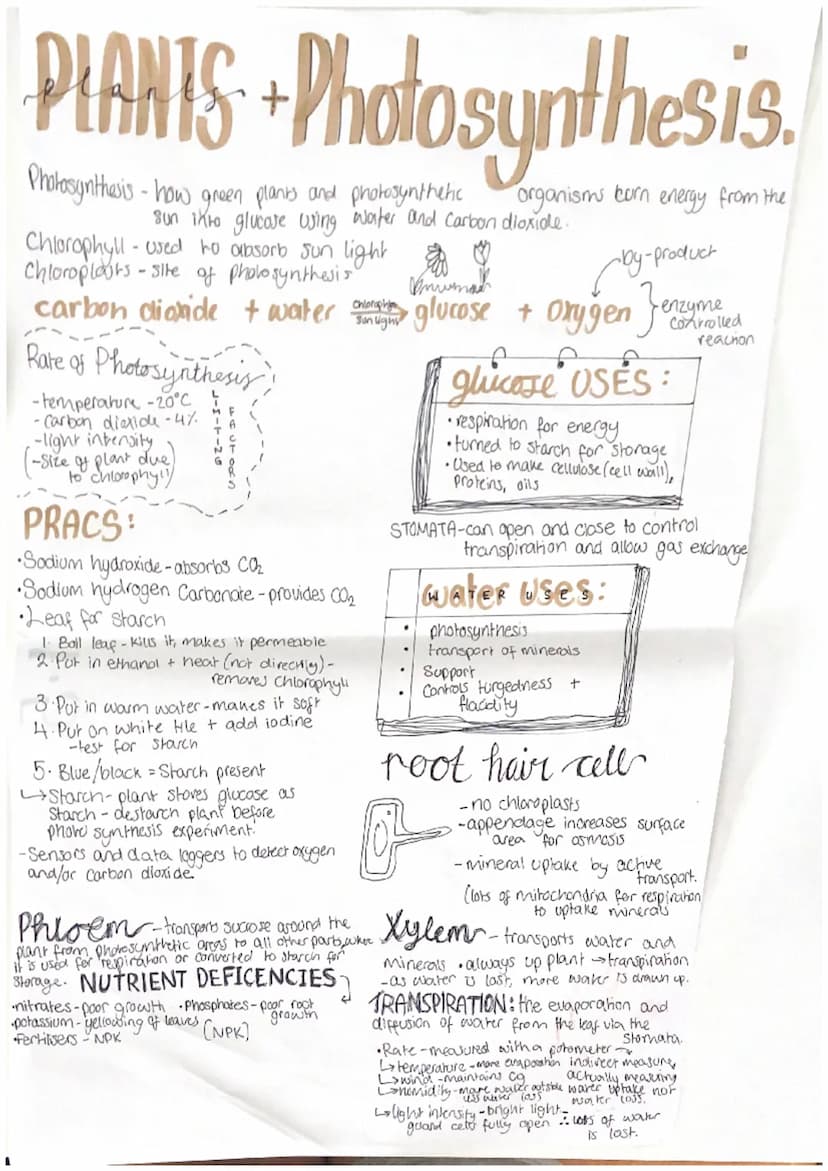 PLANTS + Photosynthesis.
plants
Photosynthesis - how green plants and photosynthetic organisms turn energy from the
sun into glucose using water and carbon dioxide.
Chlorophyll - used to absorb sun light
Chloroplasts - site of photosynthesis
by-product
carbon dioxide + water glucose + oxygen
Chlorophyll
Sun light
enzyme
controlled
reaction
Rate of Photosynthesis
- temperature - 20°C
- carbon dioxide - 4%
- light intensity
(- Size of plant due
to chlorophyll)
LIMITING
FACTORS
glucose USES:
• respiration for energy
• turned to starch for storage
• Used to make cellulose (cell wall),
proteins, oils
STOMATA - can open and close to control
transpiration and allow gas exchange
PRACS:
• Sodium hydroxide - absorbs CO2
• Sodium hydrogen Carbonate - provides CO2
• Leaf for starch
1. Boil leaf - kills it, makes it permeable
2. Put in ethanol + heat (not directly) -
removes chlorophyll
3. Put in warm water - makes it soft
4. Put on white tile + add iodine
- test for starch
5. Blue/black = Starch present
↳ Starch - plant stores glucose as
starch - destarch plant before
photosynthesis experiment.
- Sensors and data loggers to detect oxygen
and/or carbon dioxide.
water uses:
WATER USES
• photosynthesis
• transport of minerals
• Support
• Controls turgedness +
flacidity
root hair cell
- no chloroplasts
- appendage increases surface
area for osmosis
- mineral uptake by active
transport.
(lots of mitochondria for respiration
to uptake minerals
Phloem - transports sucrose around the
plant from photosynthetic areas to all other parts, where
it is used for respiration or converted to starch for
storage.
NUTRIENT DEFICENCIES
• nitrates - poor growth • Phosphates - poor root
growth
• potassium - yellowing of leaves
[NPK]
• Fertilisers - NPK
Xylem - transports water and
minerals • always up plant → transpiration
- as water is lost, more water is drawn up.
TRANSPIRATION: the evaporation and
diffusion of water from the leaf via the
stomata.
• Rate - measured with a potometer →
indirect measure,
actually measuring
water uptake not
water loss.
↳ temperature - more evaporation
↳ wind - maintains CG
↳ humidity - more water outside
less water loss
↳ light intensity - bright light -
guard cells fully open ∴ lots of water
is lost.